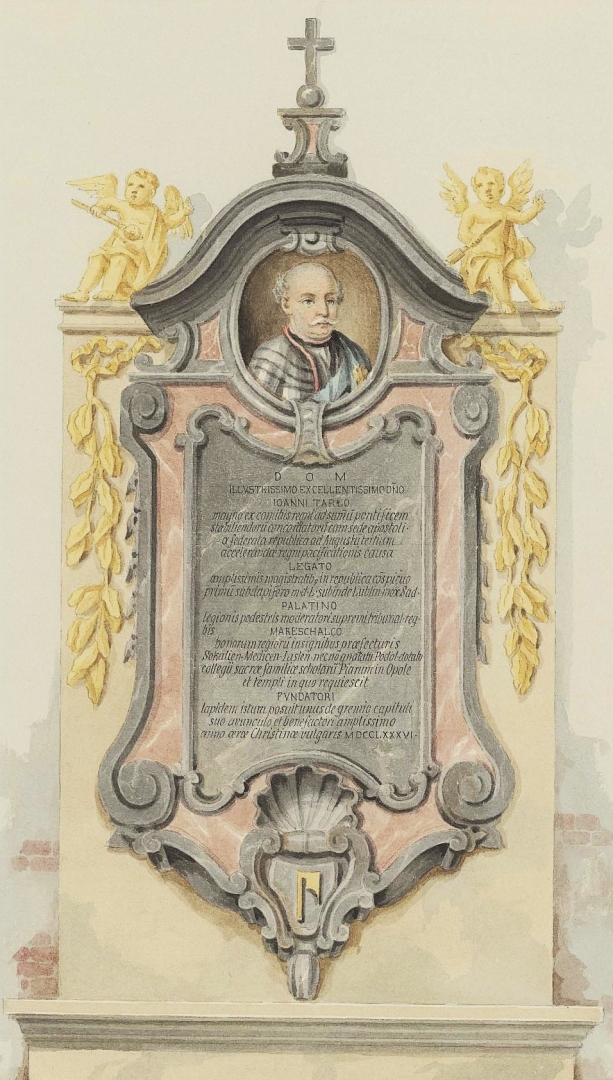 D O M
ILLVSTRISSIMO EXCELLENTISSIMO DÑO
IOANNI TARŁO
magno ex comitibs regni ad sumū pontificem
stabiliendorū concordatorū cum sede apostoli-
a federata republica ad Augustū tertium
accelerandæ regni pacificationis causa
LEGATO
amplissimis magistratibȝ in republica cōspicuo
primū subdapifero m.d.L. subinde Lublin. mox Sad-
PALATINO
legionis pedestris moderatori supremi tribunal. reg-
nis MARESCHALCO
honorum regiorū insignibus præfecturis
Sokalien. Medicen. Iaslen. nec nō gnatatu Podol. dotato
collegii sacræ familiæ scholarū Piarum in Opole
et templi in quo requiescit
FVNDATORI
lapidem istum posuit unus de gremio capituli
suo avunculo et benefactori amplissimo
anno æræ Christinæ vulgaris MDCCLXXXVI.